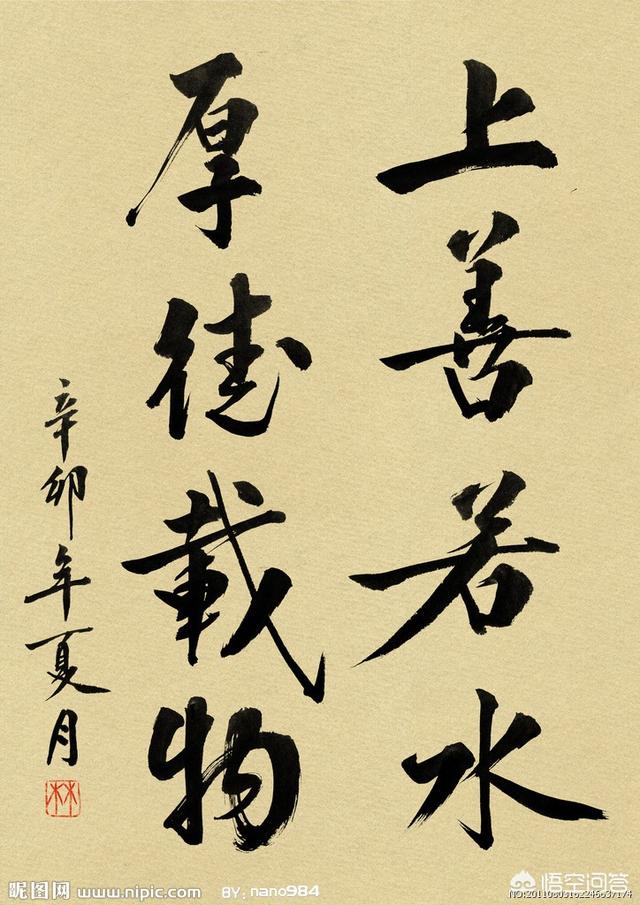 上善若水
厚德載物
辛卯年夏月
林
昵图网 www.nipic.com BY：nano984
悟空问答